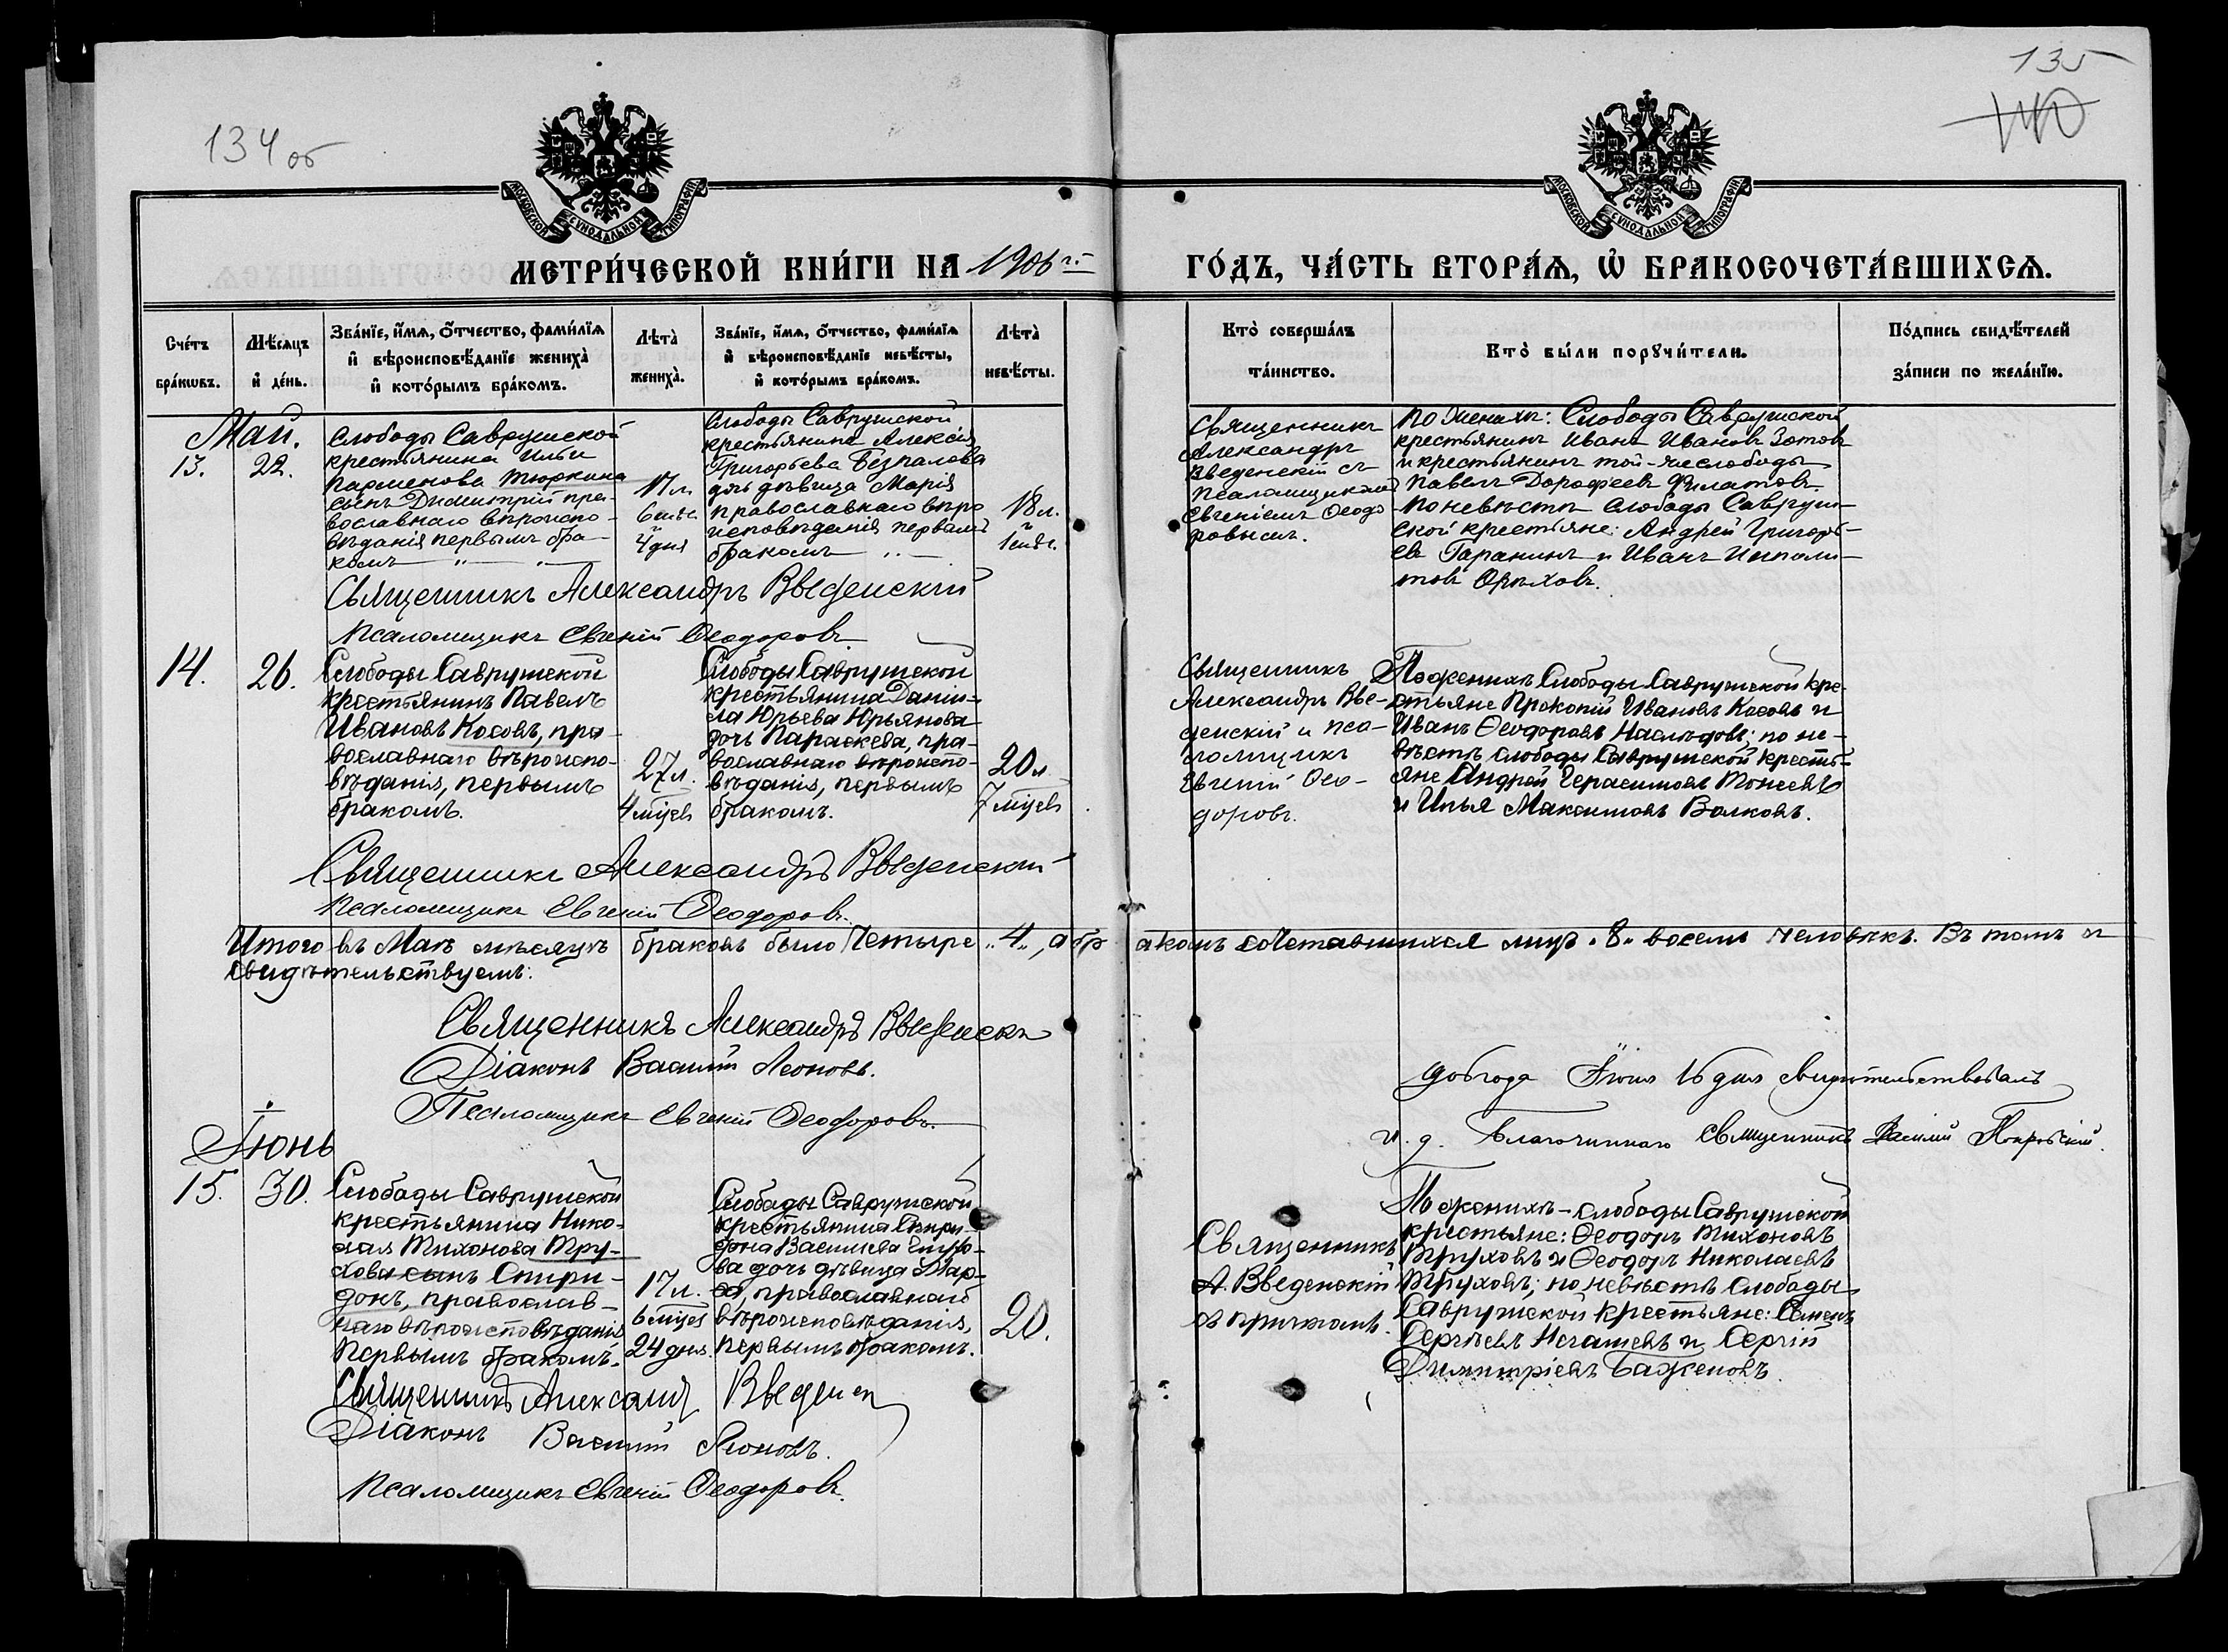 134 об
135
140
МОСКОВСКОЙ СУНОДАЛЬНОЙ ТИПОГРАФІИ
МОСКОВСКОЙ СУНОДАЛЬНОЙ ТИПОГРАФІИ
МЕТРИ́ЧЕСКОЙ КНИ́ГИ НА 1906 г.
ГО́ДЪ, ЧА́СТЬ ВТОРА́Ѧ, Ѡ҆ БРАКОСОЧЕТА́ВШИХСѦ.
Сче́тъ
бра́кѡвъ.
Мѣ́сѧцъ
и҆ де́нь.
Зва́нїе, и҆́мѧ, ѻ҆́тчество, фами́лїѧ
и҆ вѣроисповѣ́данїе жениха̀
и҆ кото́рымъ бра́комъ.
Лѣта̀
жениха̀.
Зва́нїе, и҆́мѧ, ѻ҆́тчество, фами́лїѧ
и҆ вѣроисповѣ́данїе невѣ́сты,
и҆ кото́рымъ бра́комъ.
Лѣта̀
невѣ́сты.
Кто̀ соверша́лъ
та́инство.
Кто̀ бы́ли порꙋчи́тели.
По́дпись свидѣ́телей
за́писи по жела́нїю.
Май.
13.
22.
Слободы Саврушской
крестьянина Ильи
Парменова Тюркина
сынъ Димитрій пра-
вославнаго вѣроиспо-
вѣданія первымъ бра-
комъ
17 л.
6 мѣс.
и
4 дня
Слободы Саврушской
крестьянина Алексія
Григорьева Безпалова
дочь дѣвица Марія
православнаго вѣро
исповѣданія первымъ
бракомъ
18 л.
и
1 мѣс.
Священникъ
Александръ
Введенскій съ
псаломщикомъ
Евгеніемъ Ѳеодо
ровымъ.
По женихѣ: Слободы Саврушской
крестьянинъ Иванъ Ивановъ Зотовъ
и крестьянинъ той-же слободы
Павелъ Дорофеевъ Филатовъ.
По невѣстѣ слободы Савруш-
ской крестьяне: Андрей Григорь-
евъ Гаранинъ и Иванъ Иполи-
товъ Орѣховъ.
Священникъ Александръ Введенскій
Псаломщикъ Евгеній Ѳеодоровъ
14.
26.
Слободы Саврушской
крестьянинъ Павелъ
Ивановъ Косовъ, пра-
вославнаго вѣроиспо-
вѣданія, первымъ
бракомъ.
27 л.
4 мѣсев
Слободы Саврушской
крестьянина Дани-
ла Юрьева Юрьянова
дочь Параскева, пра-
вославнаго вѣроиспо-
вѣданія, первымъ
бракомъ.
20 л
7 мѣсев
Священникъ
Александръ Вве-
денскій и пса-
ломщикъ
Евгеній Ѳео-
доровъ.
По женихѣ Слободы Саврушской кре-
стьяне Прокопій Ивановъ Косовъ и
Иванъ Ѳеодоровъ Наслѣдовъ; по не-
вѣстѣ слободы Саврушской кресть-
яне Андрей Герасимовъ Мокеевъ
и Илья Максимовъ Волковъ.
Священникъ Александръ Введенскій
Псаломщикъ Евгеній Ѳеодоровъ.
Итого въ Маѣ мѣсяцѣ браковъ было Четыре „4„, а бр акомъ сочетавшихся лицъ „8„ восемь человѣкъ. Въ томъ и
свидѣтельствуемъ:
Священникъ Александръ Введенскі
Діаконъ Василій Леоновъ.
Псаломщикъ Евгеній Ѳеодоровъ.
906 года Іюня 16 дня свидѣтельствовалъ
и. д. Благочиннаго священникъ Василій Покровскій.
Іюнь
15.
30.
Слободы Саврушской
крестьянина Нико-
лая Тихонова Тру-
хова сынъ Спири-
донъ, православ-
наго вѣроисповѣданія
первымъ бракомъ.
17 л.
6 мѣсев
24 дня.
Слободы Саврушской
крестьянина Спири-
дона Васильева
ва дочь дѣвица Мар-
, православнаго
вѣроисповѣданія,
первымъ бракомъ.
20.
Священникъ
А. Введенскій
съ причтомъ.
По женихѣ - слободы Саврушской
крестьяне: Ѳеодоръ Тихоновъ
Труховъ и Ѳеодоръ Николаевъ
Труховъ; по невѣстѣ Слободы
Саврушской крестьяне: Семенъ
Сергѣевъ и Сергій
Димитріевъ Баженовъ.
Священникъ Александ Введенск
Діаконъ Василій Леоновъ.
Псаломщикъ Евгеній Ѳеодоровъ.